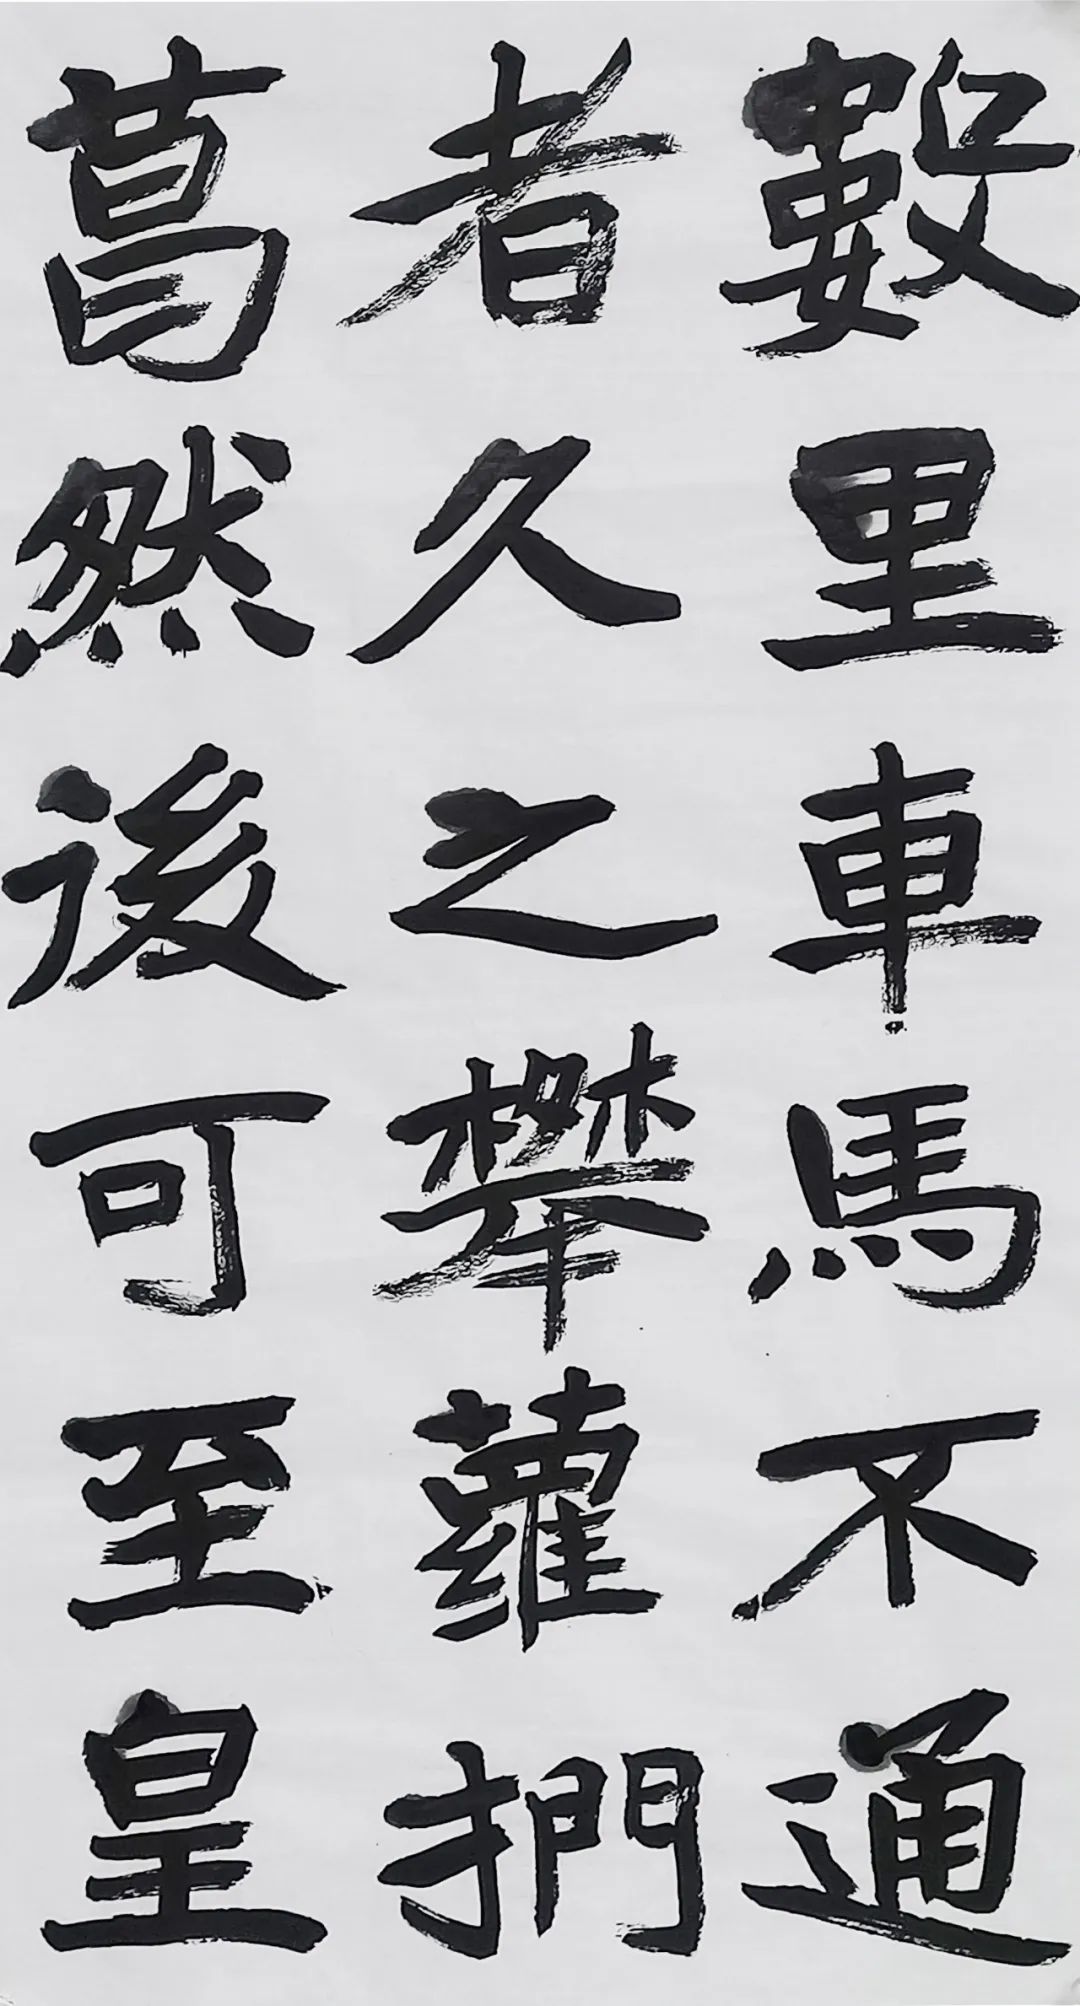 數里車馬不通
者久之攀蘿捫
葛然後可至皇